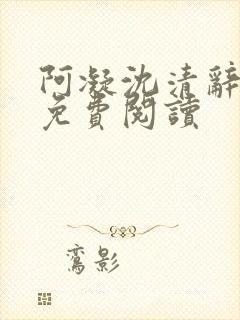 阿凝沈清辭
免費閱讀
鸞影